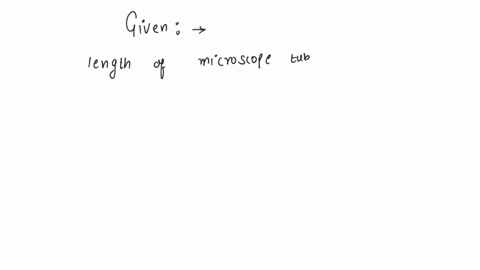 Given: →
length of microscope tub